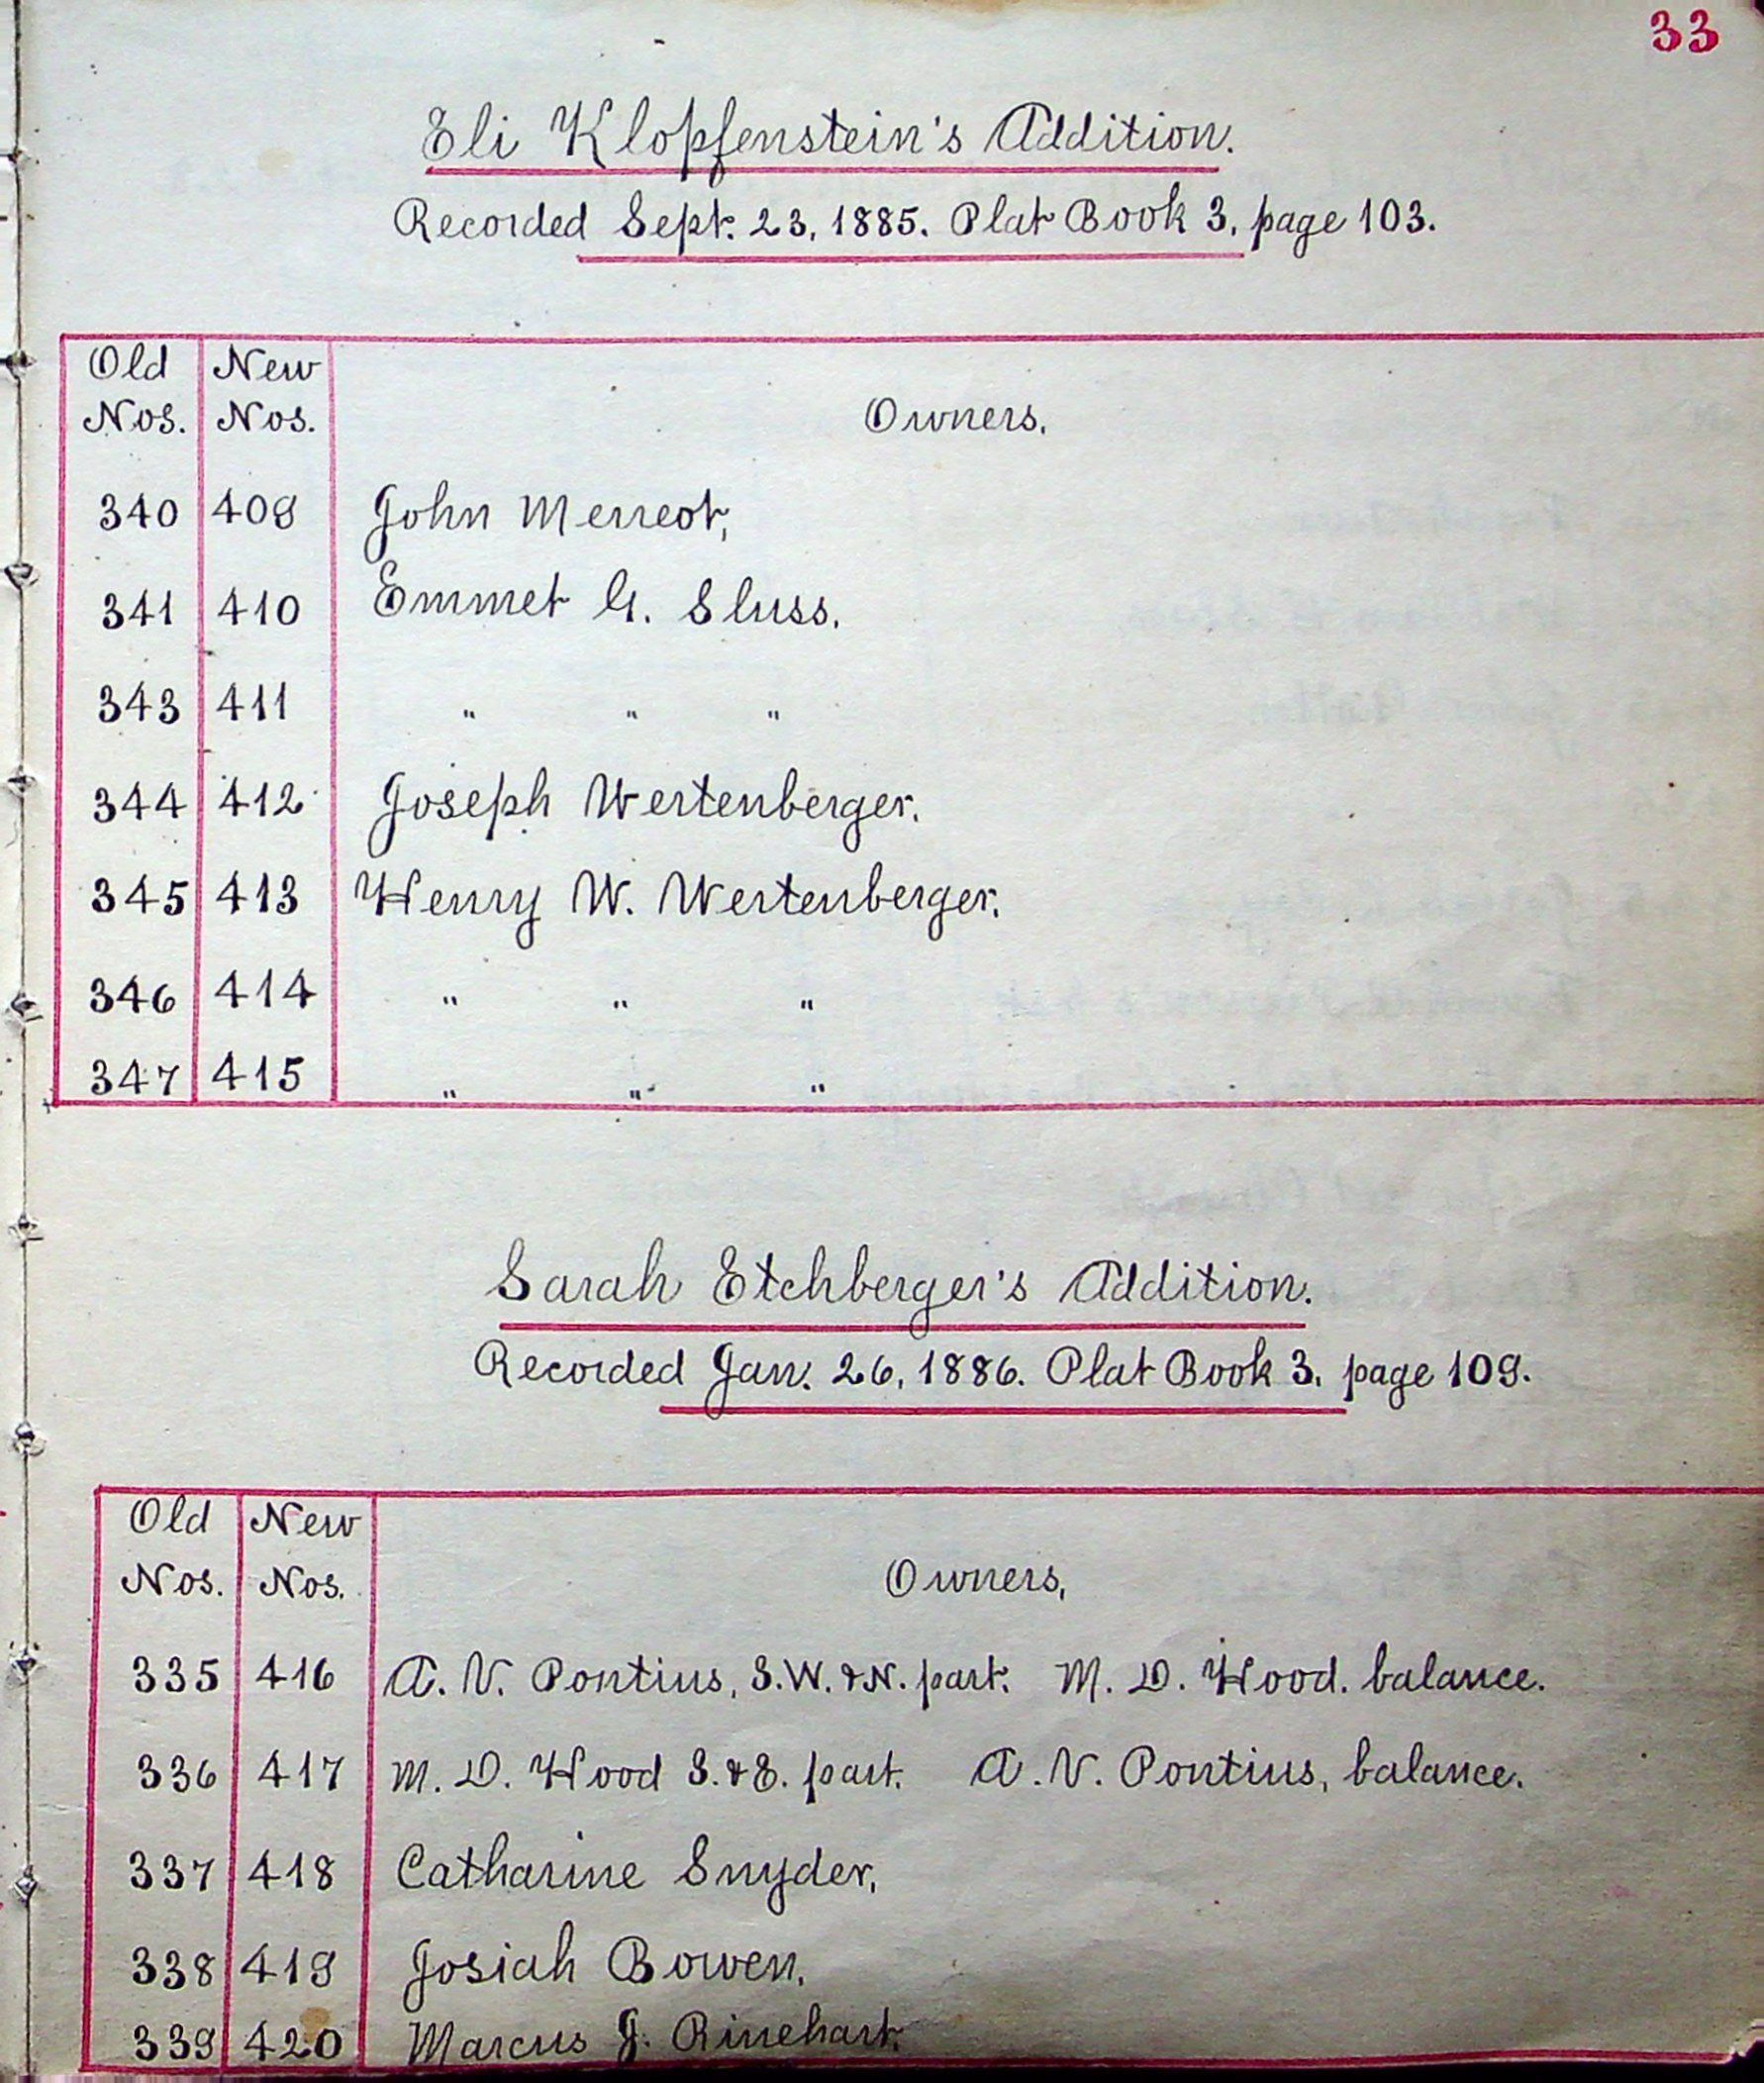 33
Eli Klopfenstein's Addition.
Recorded Sept. 23, 1885. Plat Book 3, page 103.
Old Nos. New Nos. Owners.
340 409 John Merreot,
341 410 Emmet G. Sluss.
343 411 " " "
344 412 Joseph Wertenberger.
345 413 Henry W. Wertenberger.
346 414 " " "
347 415 " " "
Sarah Etchberger's Addition.
Recorded Jan. 26, 1886. Plat Book 3. page 109.
Old Nos. New Nos. Owners,
335 416 A. V. Pontius, S.W. & N. part. M. D. Wood. balance.
336 417 M. D. Wood S. & E. part. A. V. Pontius, balance.
337 418 Catharine Snyder,
338 419 Josiah Bowen.
339 420 Marcus J. Rinehart.